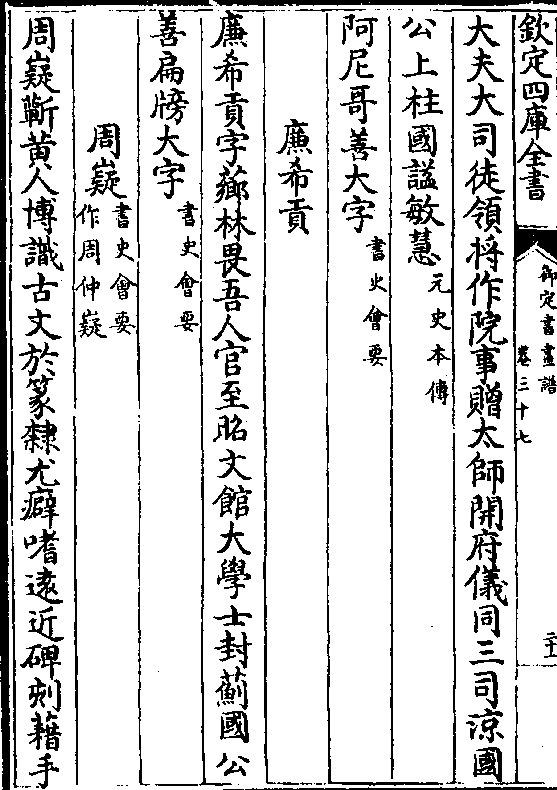 欽定四庫全書
御定書畫譜
卷三十七
二十一
大夫大司徒領将作院事贈太師開府儀同三司涼國
公上柱國諡敏慧元史本傳
阿尼哥善大字書史會要
廉希貢
廉希貢字薌林畏吾人官至昭文館大學士封薊國公
善扁牓大字書史會要
周嶷書史會要作周仲嶷
周嶷蘄黄人博識古文於篆隸尤癖嗜逺近碑刻藉手